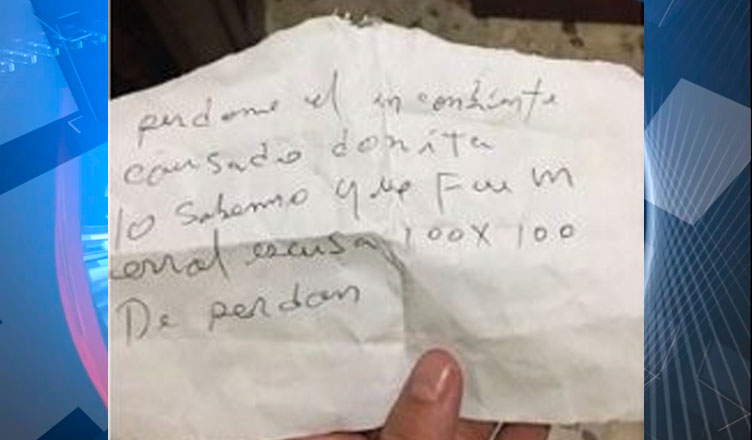 perdone el inconbiente
causado doñita
lo sabemo que Fue un
error escusa 100X100
De perdon